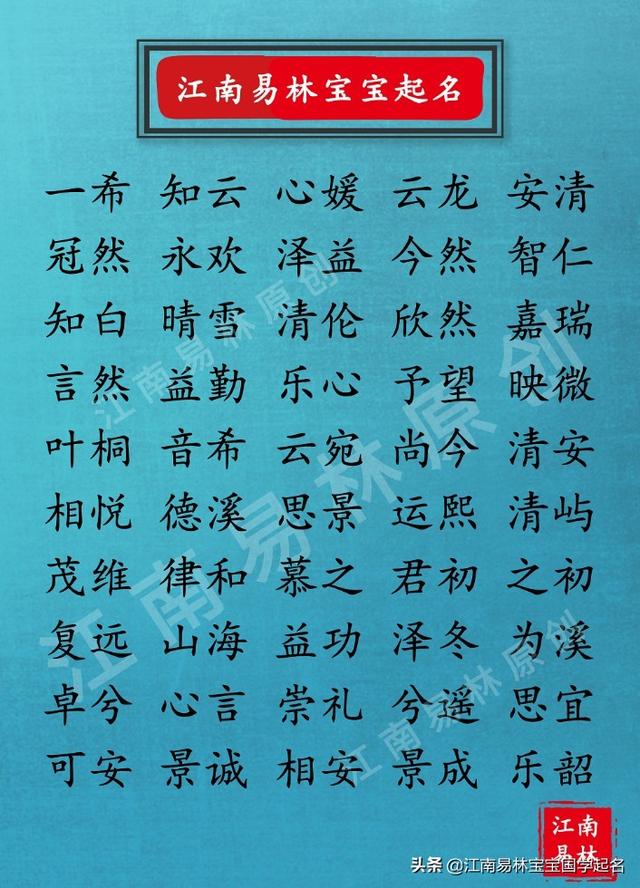 江南易林宝宝起名
一希 知云 心媛 云龙 安清
冠然 永欢 泽益 今然 智仁
知白 晴雪 清伦 欣然 嘉瑞
言然 益勤 乐心 予望 映微
叶桐 音希 云宛 尚今 清安
相悦 德溪 思景 运熙 清屿
茂维 律和 慕之 君初 之初
复远 山海 益功 泽冬 为溪
卓兮 心言 崇礼 兮遥 思宜
可安 景诚 相安 景成 乐韶
江南易林原创
江南易林原创
江南易林原创
江南
易林
头条 @江南易林宝宝国学起名